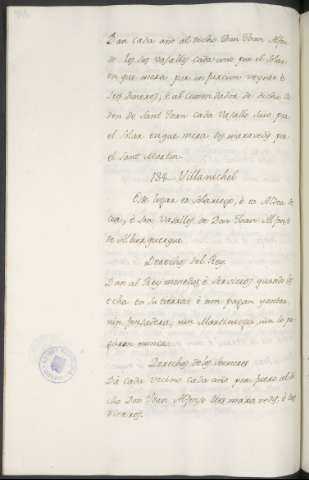 Dan cada año al dicho Don Ioan Alfon
so los sus vasallos cada uno por el Solar
en que mora por infurcion veynte é
seys dineros, é al Comendador de dicha Or
den de Sant Joan cada vasallo suio por
el solar en que mora dos maravedis por
el Sant Martin.
184 Villamichel
Este lugar es solariego, é es Aldea de
é son Vasallos de Don Ioan Alfonso
de Alburquerque.
Derechos del Rey.
Dan al Rey monedas é servicios quando los
echa en su tierra: é non pagan yantar,
nin fonsadera, nin Martiniega, nin la pa
garon nunca.
Derechos de los Señores
Dá cada vecino cada año por fuero al di
cho Don Ioan Alfonso tres maravedis, é dos
dineros.